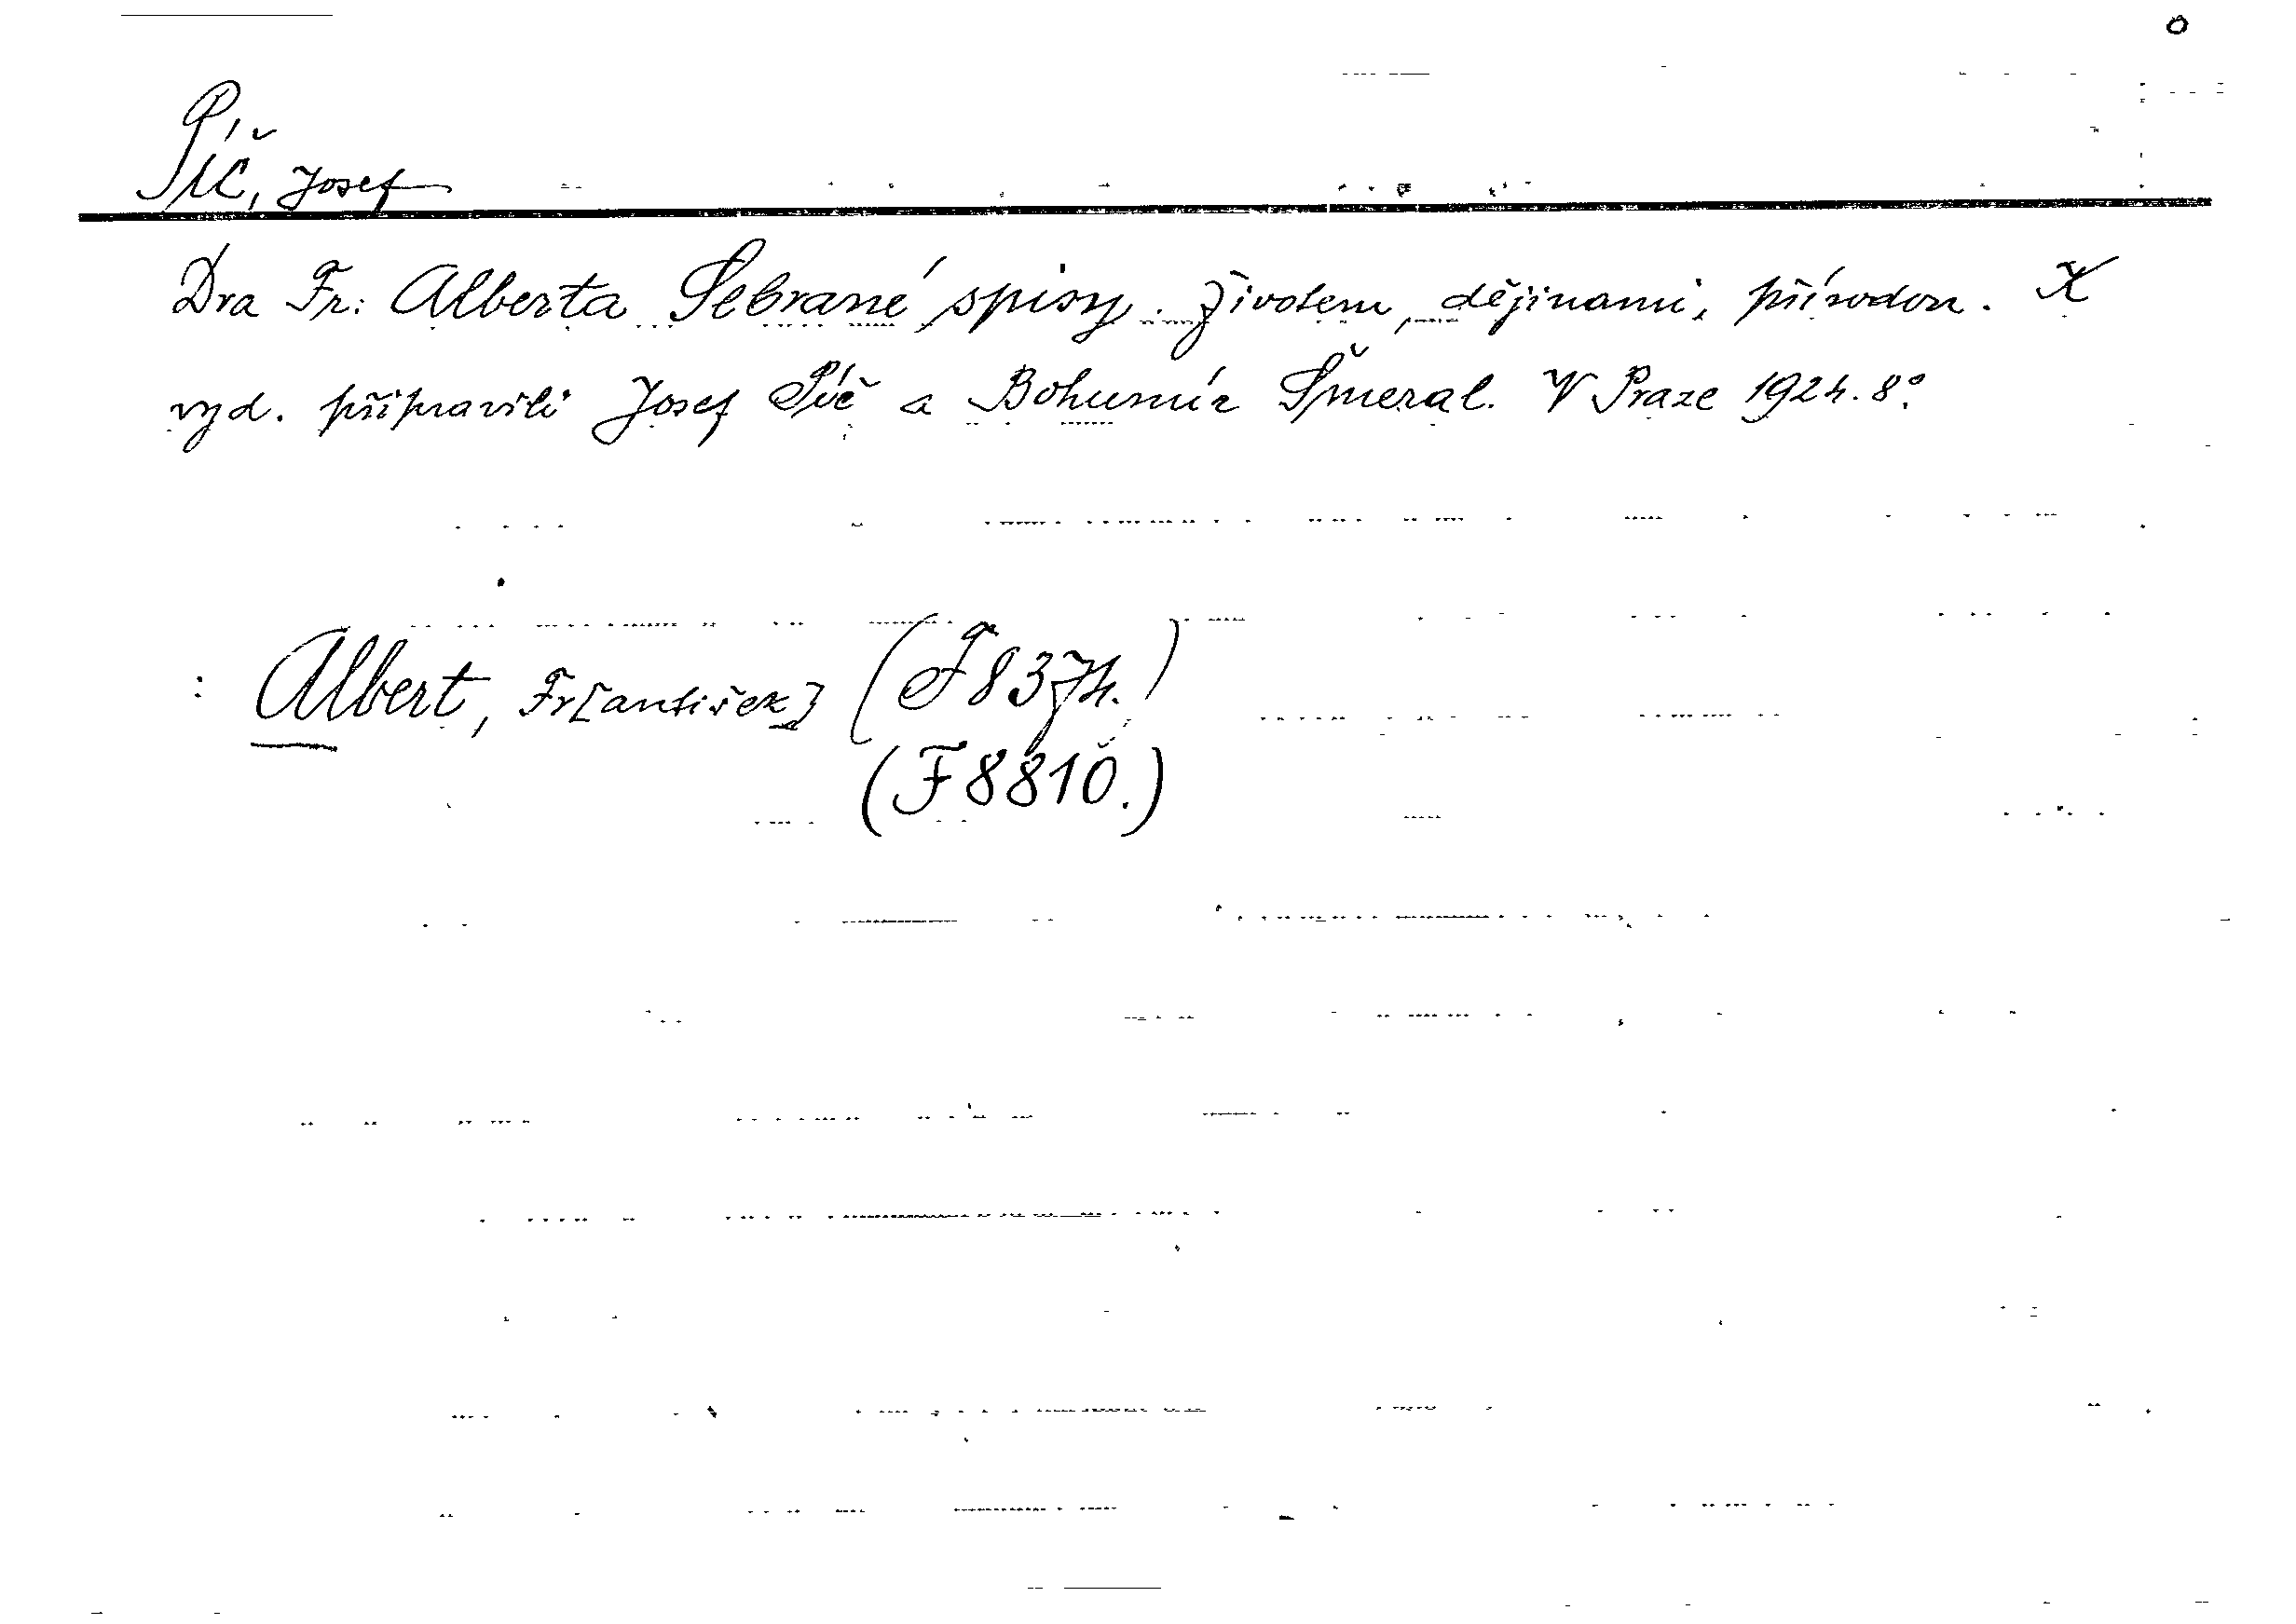 Píč, Josef
Dra Fr. Alberta Sebrané spisy. Životem, dějinami, přírodou. K
vyd. připravili Josef Píč a Bohumír Šmeral. V Praze 1924. 8°.
: Albert, Fr[antišek] (F 8374.)
(F 8810.)